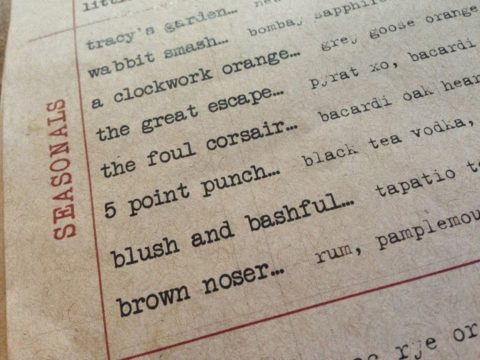 tracy's garden...
wabbit smash... bombay sapphire
a clockwork orange... grey goose orange
the great escape... pyrat xo, bacardi
the foul corsair... bacardi oak hear
5 point punch... black tea vodka,
blush and bashful... tapatio te
brown noser... rum, pamplemou
rye or
SEASONALS